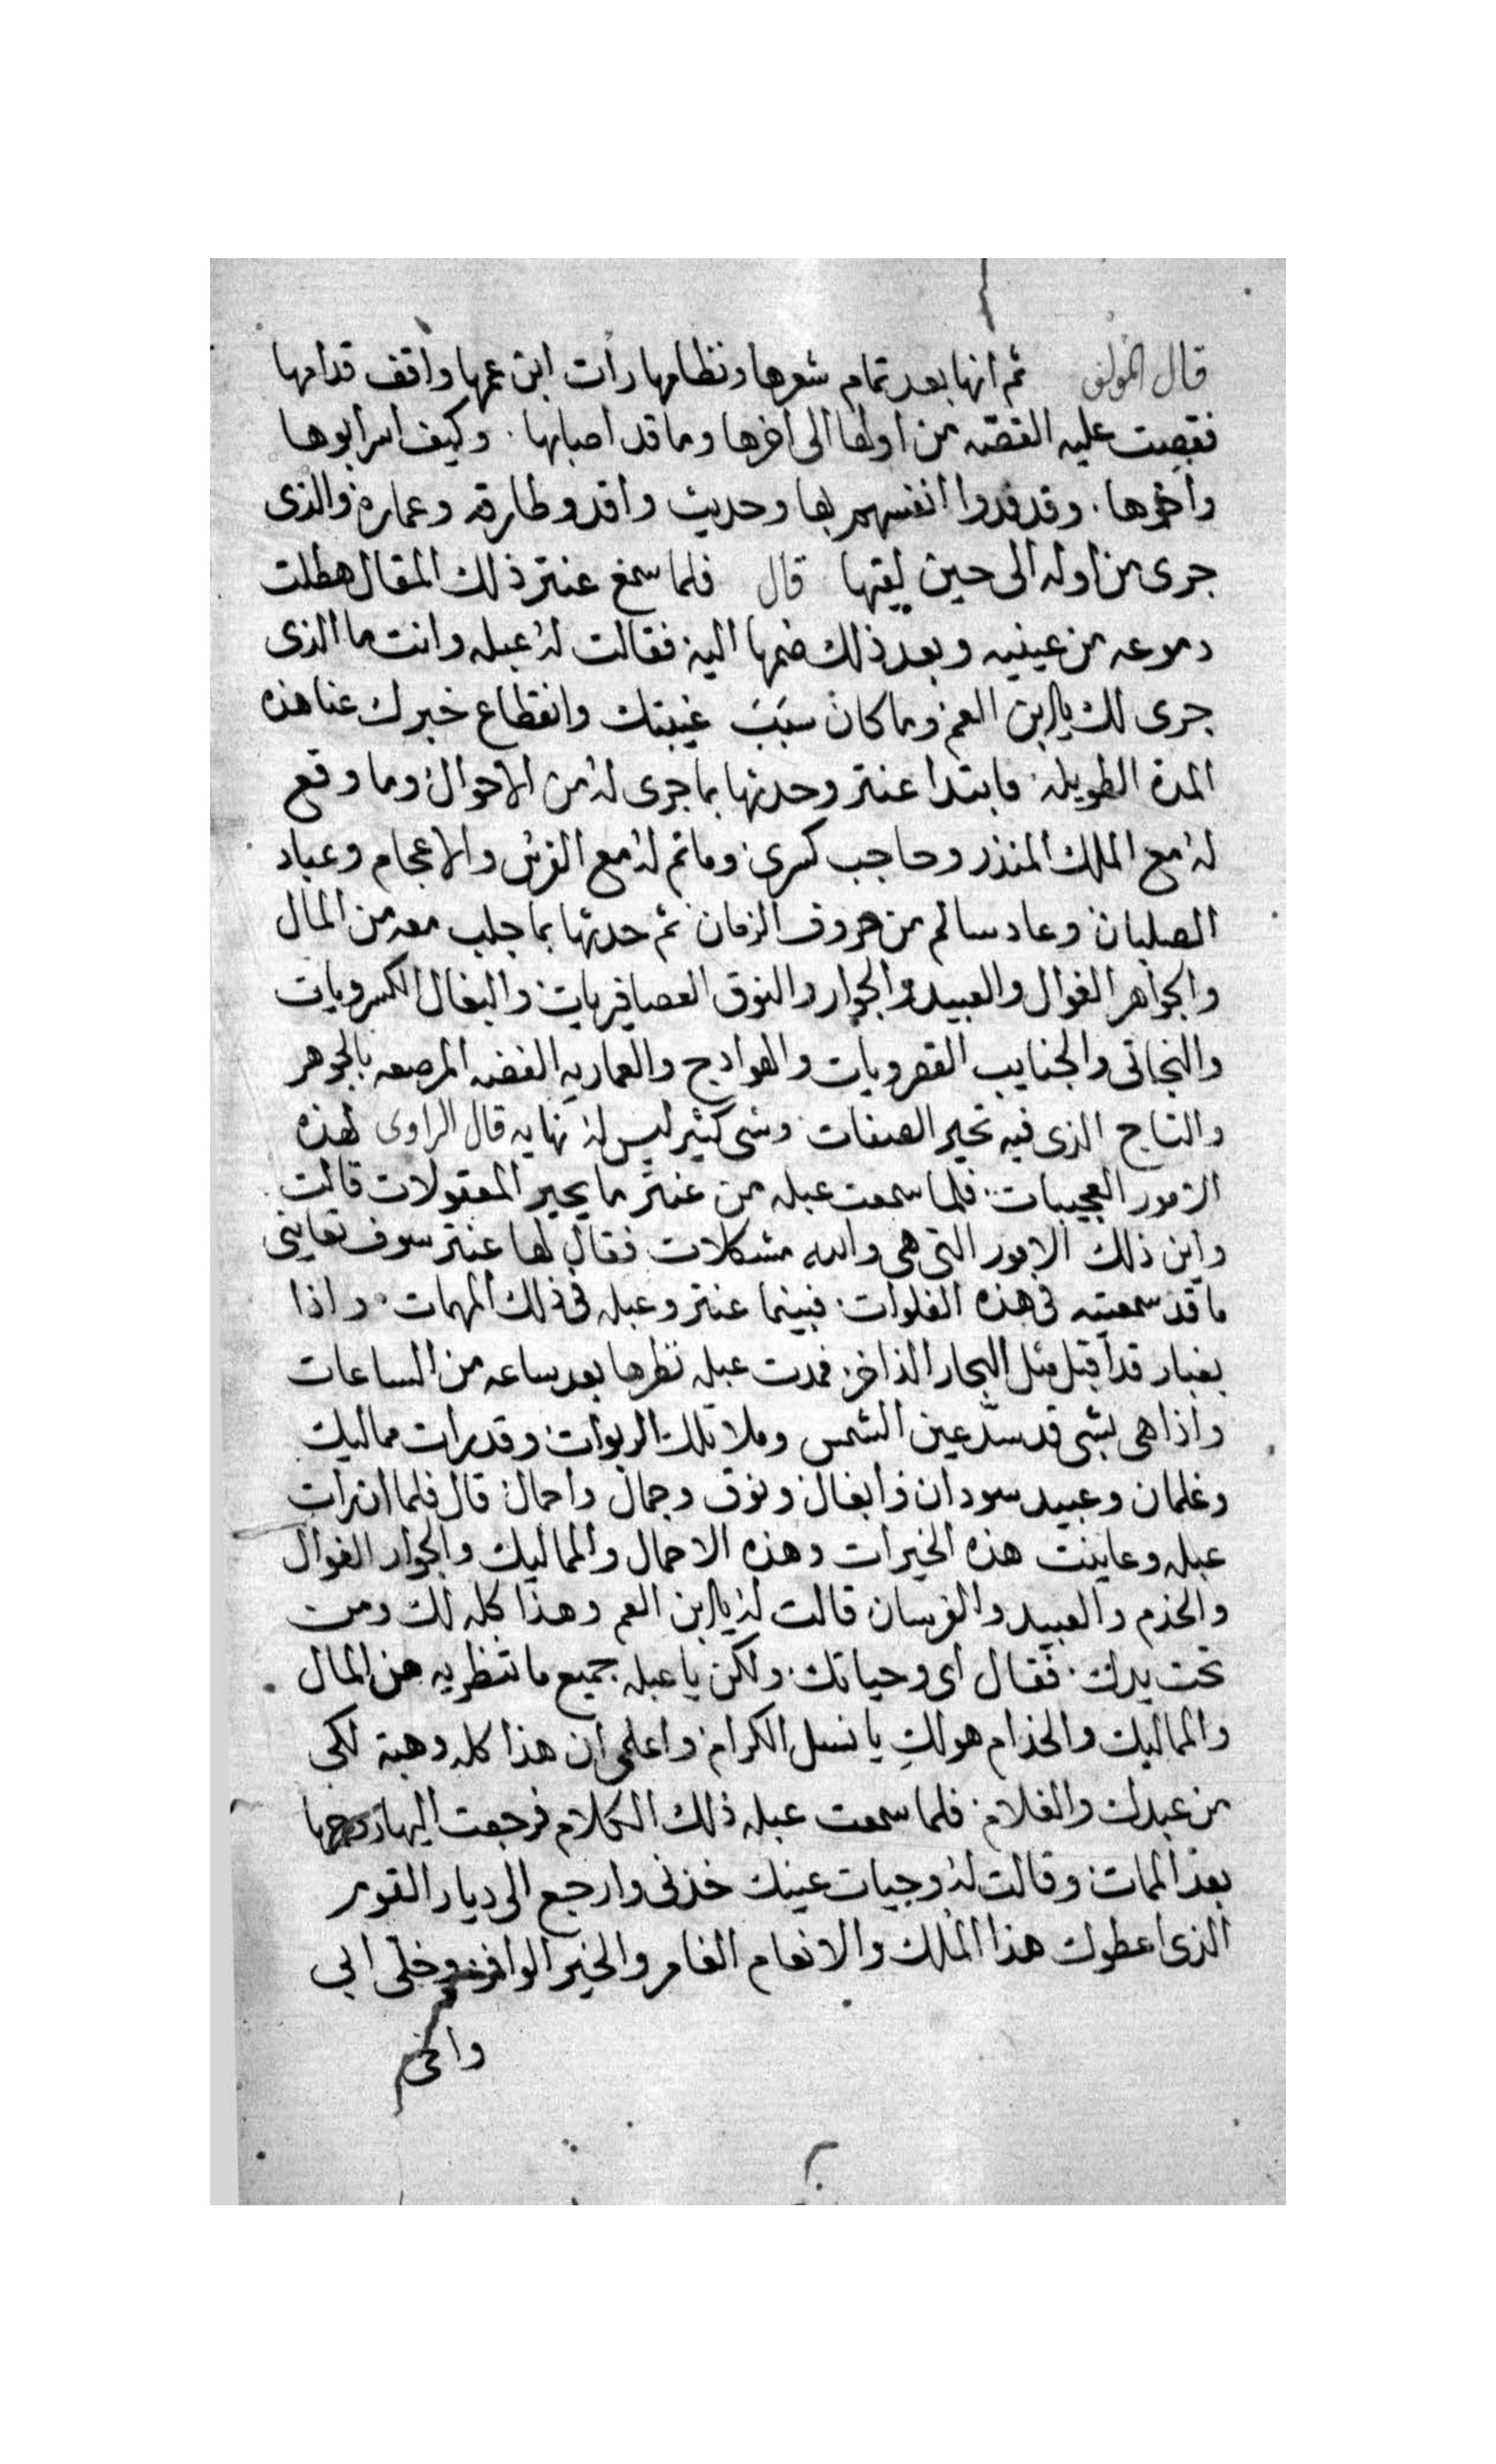 قال المولف ثم انها بعد تمام شعرها ونظامها رات ابن عمها واقف قدامها
فقصت عليه القصه من اولها الى اخرها وما قد اصابها. وكيف اسر ابوها
واخوها. وقد فدوا انفسهم بها وحديث واقد وطارقه وعماره والذى
جرى من اوله الى حين لقيها قال فلما سمع عنتر ذلك المقال هطلت
دموعه من عينيه وبعد ذلك ضمها اليه فقالت له عبله وانت ما الذى
جرى لك يا ابن العم وما كان سبب غيبتك وانقطاع خبرك عنا هذه
المدة الطويله فابتدا عنتر وحدثها بما جرى له من الاحوال وما وقع
له مع الملك المنذر وحاجب كسرى وما تم له مع الفرس والاعجام وعباد
الصلبان وعاد سالم من صروف الزمان ثم حدثها بما جلب معه من المال
والجواهر الغوال والعبيد والجوار والنوق العصافريات والبغال الكسرويات
والبخاتى والجنايب القصرويات والهوادج والعماريه الفضه المرصعه بالجوهر
والتاج الذى فيه تحير الصفات وشى كثير ليس له نهايه قال الراوى لهذه
الامور العجيبات فلما سمعت عبله من عنتر ما يحير المعقولات قالت
واين ذلك الامور التى هى والله مشكلات فقال لها عنتر سوف تعاينى
ما قد سمعتيه فى هذه الفلوات فبينما عنتر وعبله فى ذلك المهمات واذا
بغبار قد اقبل مثل البحار الذاخر فمدت عبله نظرها بعد ساعه من الساعات
واذا هى بشى قد سدّ عين الشمس وملا تلك الربوات وقد رات مماليك
وغلمان وعبيد سودان وابغال ونوق وجمال واحمال قال فلما ان رات
عبله وعاينت هذه الخيرات وهذه الاحمال والمماليك والجوار الغوال
والخدم والعبيد والفرسان قالت له يا ابن العم وهذا كله لك ومن
تحت يدك. فقال اى وحياتك. ولكن يا عبله جميع ما تنظريه من المال
والمماليك والخدام هو لكِ يا نسل الكرام واعلمى ان هذا كله وهبة لكى
من عبدك والغلام فلما سمعت عبله ذلك الكلام فرجعت اليها روحها
بعد الممات وقالت له وحيات عينيك خذنى وارجع الى ديار القوم
الذى اعطوك هذا الملك والانعام الغامر والخير الوافر وخلى ابى
واخى